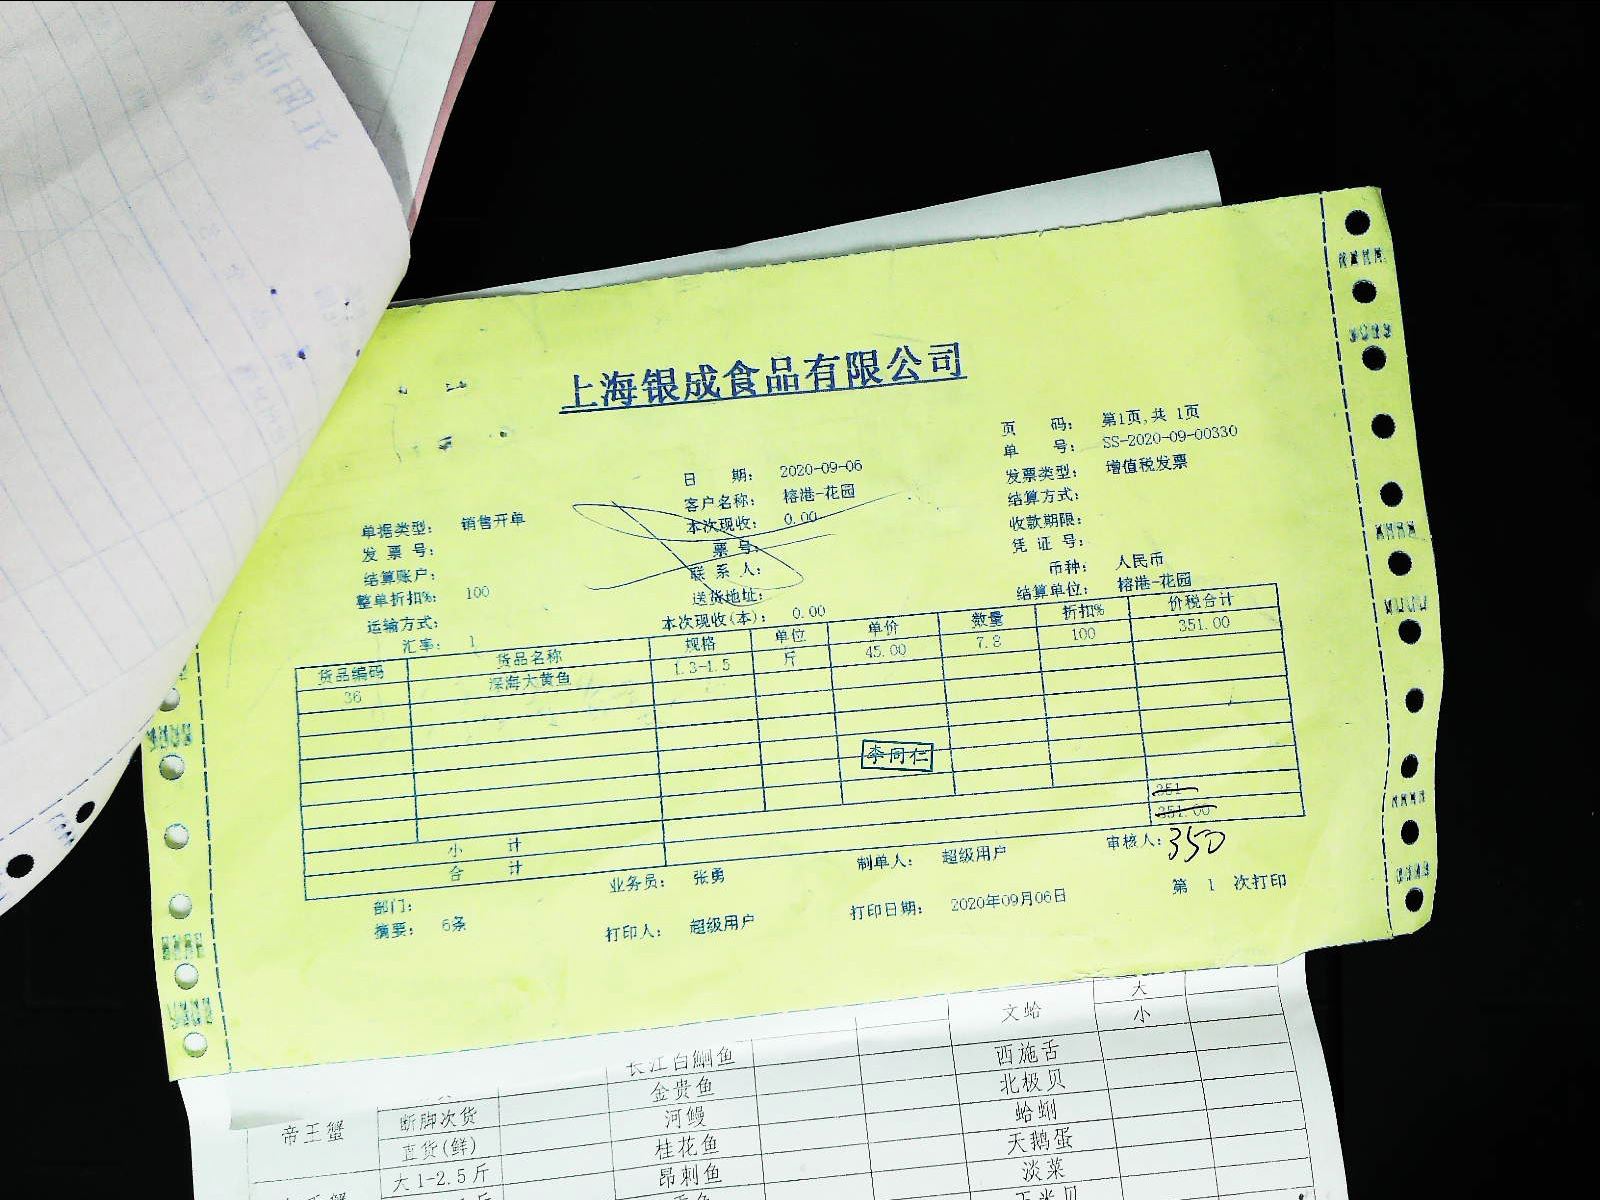 上海银成食品有限公司
页 码: 第1页,共 1页
单 号: SS-2020-09-00330
日 期: 2020-09-06
发票类型: 增值税发票
客户名称: 榕港-花园
结算方式:
单据类型: 销售开单
本次现收: 0.00
收款期限:
发 票 号:
票 号:
凭 证 号:
结算账户:
联 系 人:
币种: 人民币
整单折扣%: 100
送货地址:
结算单位: 榕港-花园
运输方式:
本次现收(本): 0.00
汇率: 1
货品编码 货品名称 规格 单位 单价 数量 折扣% 价税合计
36 深海大黄鱼 1.3-1.5 斤 45.00 7.8 100 351.00
李同仁
小 计 351
合 计 351.00
350
部门: 业务员: 张勇 制单人: 超级用户 审核人:
摘要: 6条 打印人: 超级用户 打印日期: 2020年09月06日 第 1 次打印
文蛤 大
小
长江白鮰鱼 西施舌
金贵鱼 北极贝
帝王蟹 断脚次货 河鳗 蛤蜊
直货(鲜) 桂花鱼 天鹅蛋
大1-2.5斤 昂刺鱼 淡菜